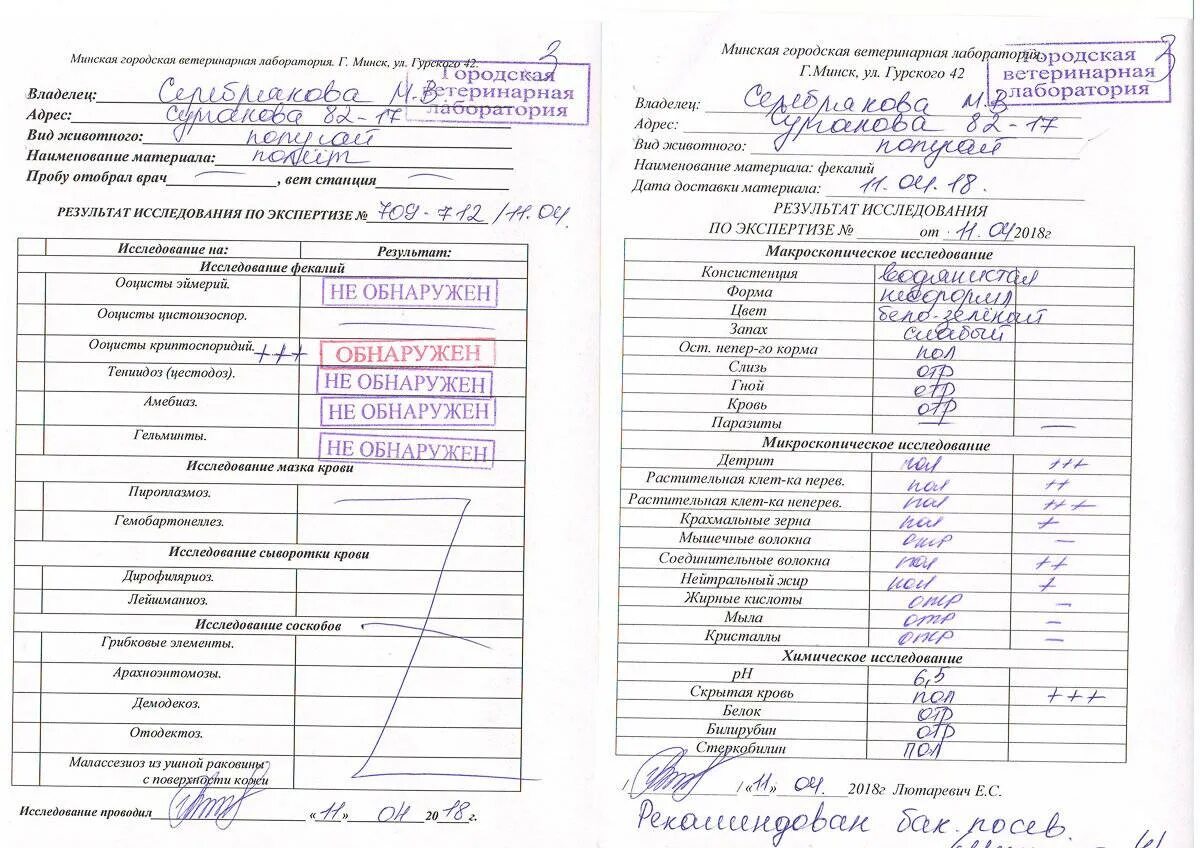 3
Минская городская ветеринарная лаборатория. Г. Минск, ул. Гурского 42.
Городская
ветеринарная
лаборатория
Владелец: Серебрякова М.В
Адрес: Сурганова 82-17
Вид животного: попугай
Наименование материала: помёт
Пробу отобрал врач , вет станция
РЕЗУЛЬТАТ ИССЛЕДОВАНИЯ ПО ЭКСПЕРТИЗЕ № 709-712 /11.04.
Исследование на: Результат:
Исследование фекалий
Ооцисты эймерий. НЕ ОБНАРУЖЕН
Ооцисты цистоизоспор. —
Ооцисты криптоспоридий. +++ ОБНАРУЖЕН
Тениидоз (цестодоз). НЕ ОБНАРУЖЕН
Амебиаз. НЕ ОБНАРУЖЕН
Гельминты. НЕ ОБНАРУЖЕН
Исследование мазка крови
Пироплазмоз.
Гемобартонеллез.
Исследование сыворотки крови
Дирофиляриоз.
Лейшманиоз.
Исследование соскобов
Грибковые элементы.
Арахноэнтомозы.
Демодекоз.
Отодектоз.
Малассезиоз из ушной раковины
с поверхности кожи
Исследование проводил «11» 04 2018г.
3
Минская городская ветеринарная лаборатория.
Г.Минск, ул. Гурского 42
Городская
ветеринарная
лаборатория
Владелец: Серебрякова М.В
Адрес: Сурганова 82-17
Вид животного: попугай
Наименование материала: фекалий
Дата доставки материала: 11.04.18.
РЕЗУЛЬТАТ ИССЛЕДОВАНИЯ
ПО ЭКСПЕРТИЗЕ № от 11.04 2018г
Макроскопическое исследование
Консистенция водянистая
Форма неоформл
Цвет бело-зелёный
Запах слабый
Ост. непер-го корма пол
Слизь отр
Гной отр
Кровь отр
Паразиты — —
Микроскопическое исследование
Детрит пол +++
Растительная клет-ка перев. пол ++
Растительная клет-ка неперев. пол +++
Крахмальные зерна пол +
Мышечные волокна отр —
Соединительные волокна пол ++
Нейтральный жир пол +
Жирные кислоты отр —
Мыла отр —
Кристаллы отр —
Химическое исследование
pH 6,5
Скрытая кровь пол +++
Белок отр
Билирубин отр
Стеркобилин пол
/ / «11» 04. 2018г Лютаревич Е.С.
Рекомендован бак. посев.